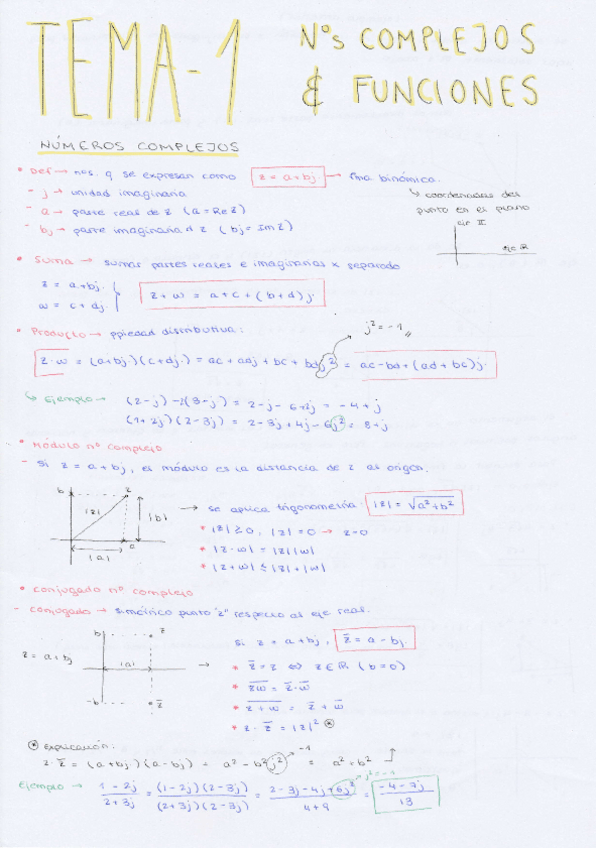 TEMA-1
Nºs COMPLEJOS
& FUNCIONES
NÚMEROS COMPLEJOS
* Def → nos. q se expresan como z = a+bj → fma binómica.
↳ coordenadas del
punto en el plano
- j → unidad imaginaria
- a → parte real de z (a = Re z)
- bj → parte imaginaria d z (bj = Im z)
eje II
eje R
* Suma → sumar partes reales e imaginarias x separado
z = a+bj.
w = c+dj.
z+w = a+c+(b+d)j.
* Producto → ppiedad distributiva:
j² = -1
z·w = (a+bj.)(c+dj.) = ac + adj + bc + bdj² = ac-bd+(ad+bc)j.
↳ Ejemplo → (2-j)-2(3-j) = 2-j-6+2j = -4+j
(1+2j)(2-3j) = 2-3j+4j-6j² = 8+j
* Módulo nº complejo
- Si z = a+bj, el módulo es la distancia de z al origen.
b z |z| |b| |a| 0
→ se aplica trigonometría: |z| = √a²+b²
* |z| ≥ 0, |z| = 0 → z=0
* |z·w| = |z||w|
* |z+w| ≤ |z|+|w|
* Conjugado nº complejo
- Conjugado → simétrico punto "z" respecto al eje real.
z = a+bj
b z |a| -b z̅
→ si z = a+bj, z̅ = a-bj
* z̅ = z ⇔ z∈R (b=0)
* z̅w̅ = z̅·w̅
* z̅+̅w̅ = z̅ + w̅
* z·z̅ = |z|² ⊛
⊛ Explicación:
z·z̅ = (a+bj.)(a-bj) = a²-b²j² = a²+b²
-1
Ejemplo → 1-2j/2+3j = (1-2j)(2-3j)/(2+3j)(2-3j) = 2-3j-4j+6j²/4+9 = -4-7j/13
j²=-1